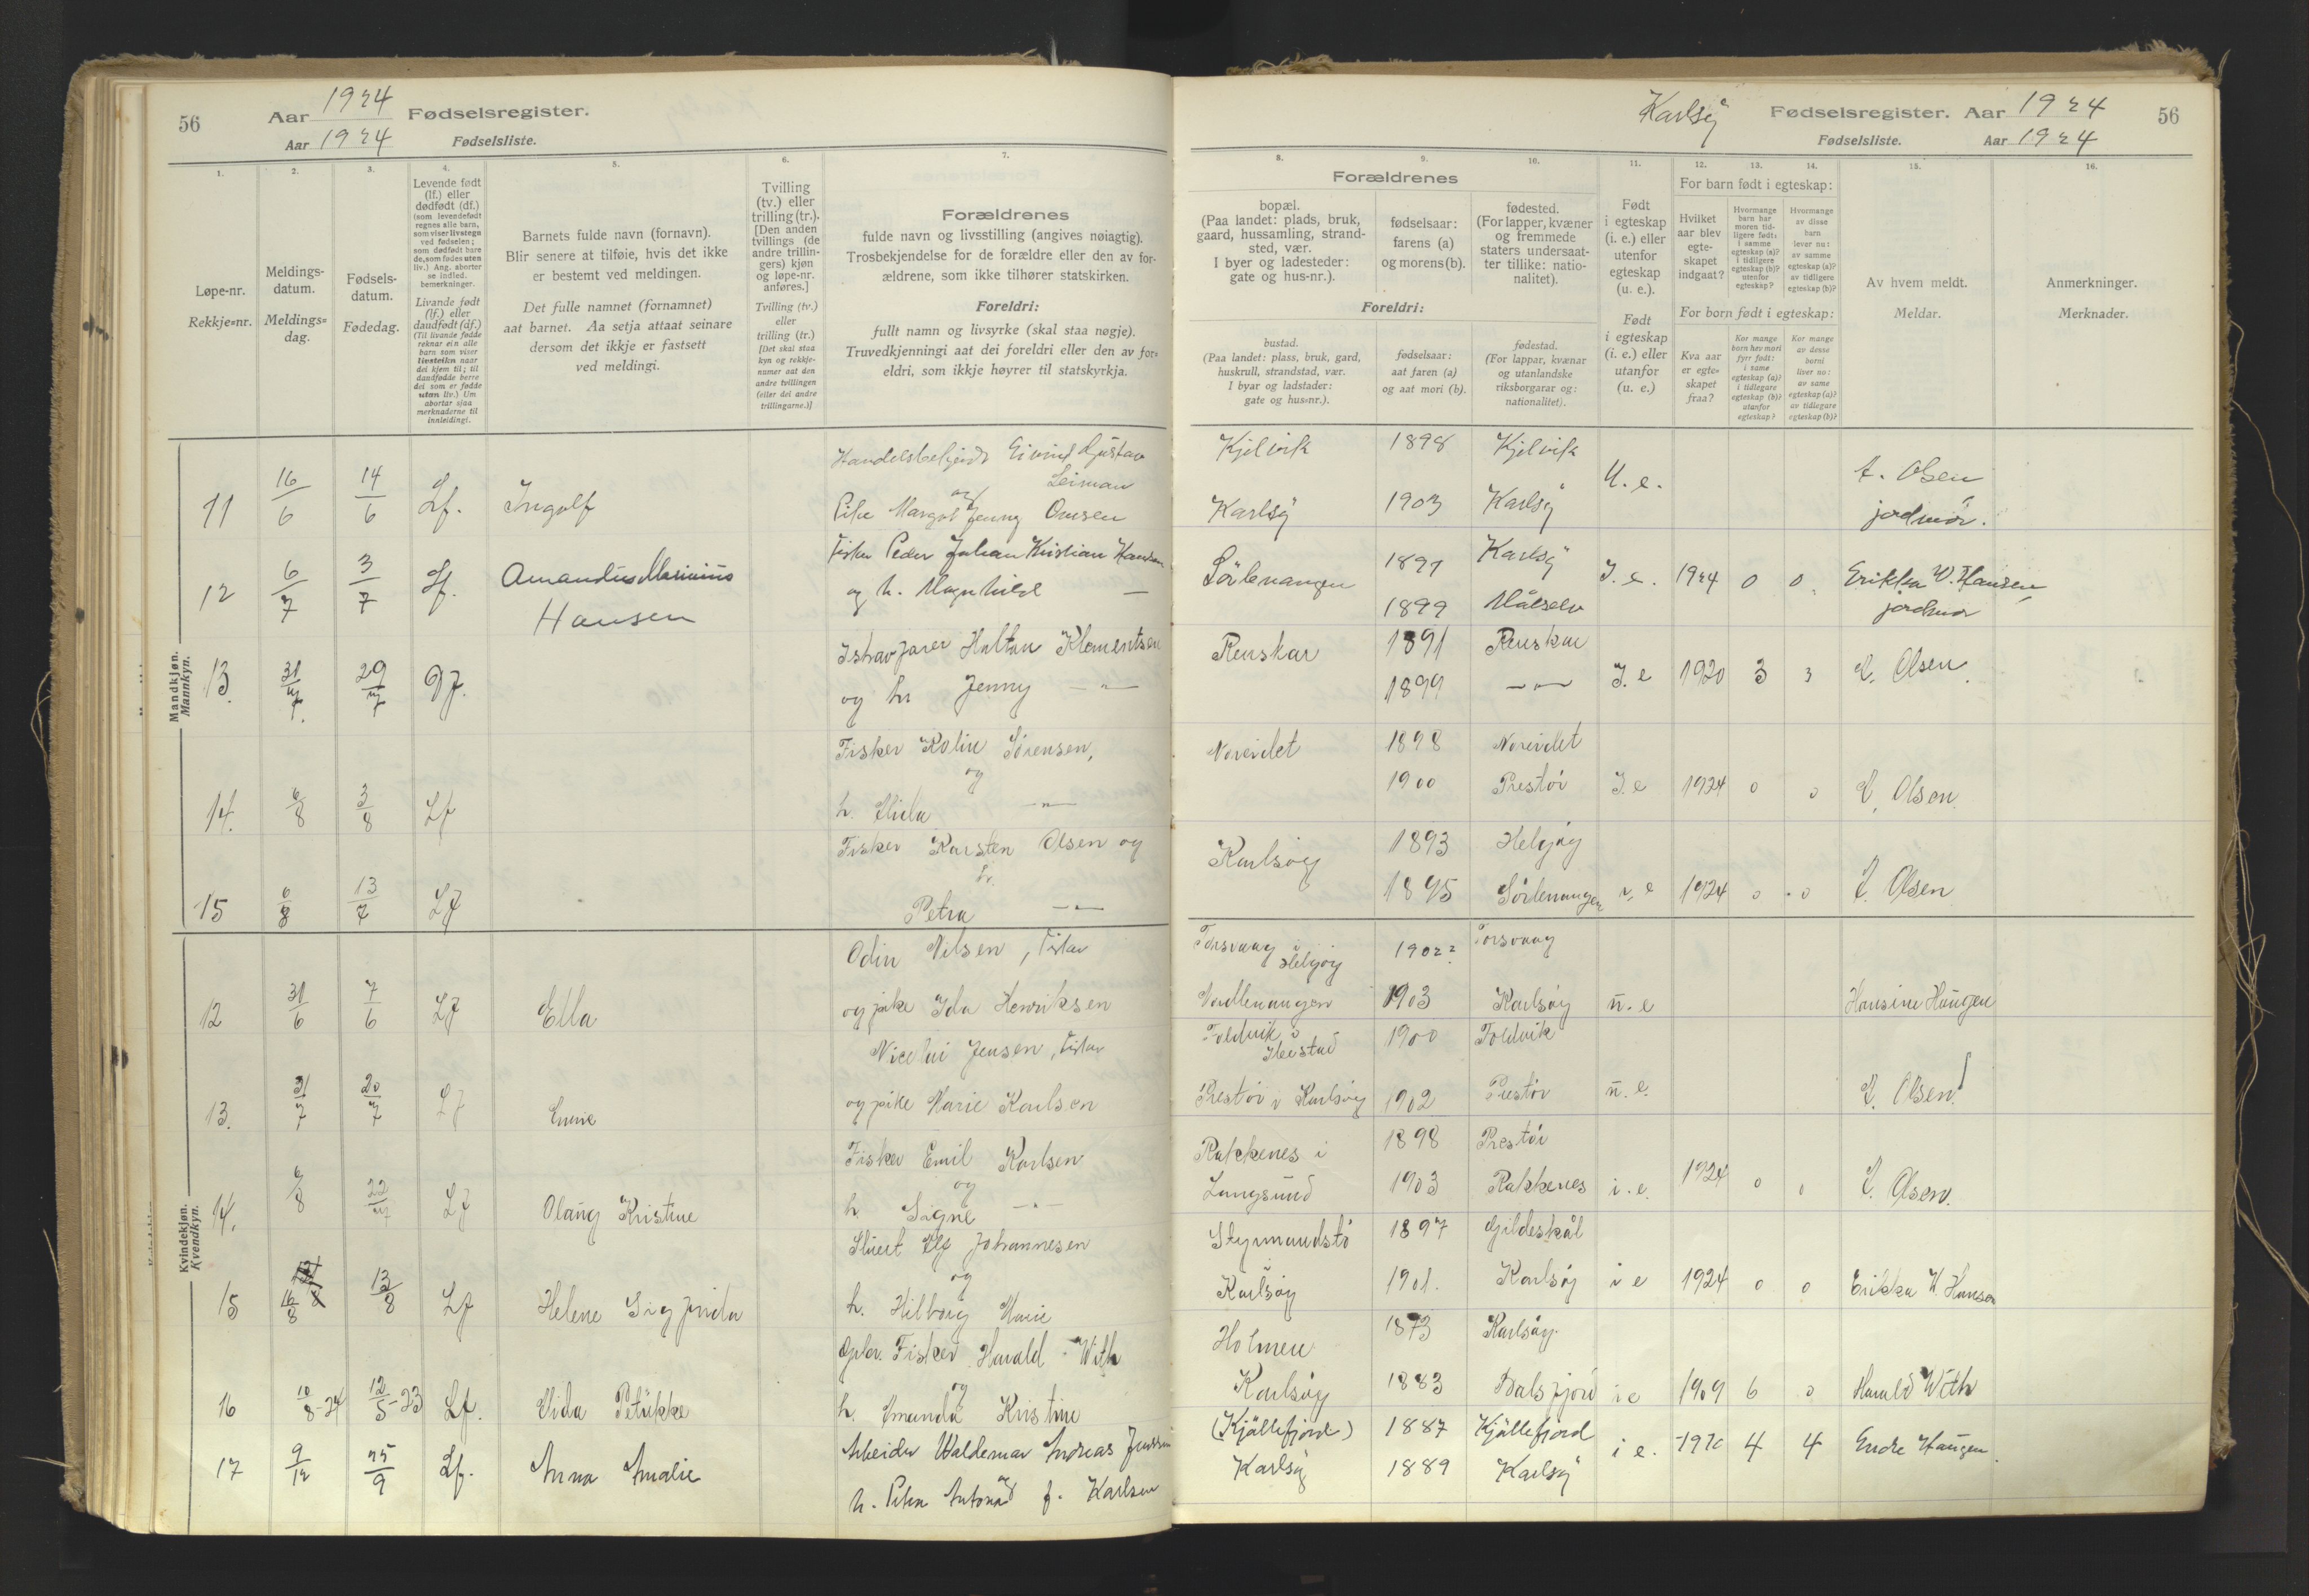 56
Aar 1924 Fødselsregister.
Aar 1924 Fødselsliste.
1.
Løpe-nr.
Rekkje=nr.
2.
Meldings-
datum.
Meldings=
dag.
3.
Fødsels-
datum.
Fødedag.
4.
Levende født
(lf.) eller
dødfødt (df.)
(som levendefødt
regnes alle barn,
som viser livstegn
ved fødselen;
som dødfødt bare
de, som fødes uten
liv.) Ang. aborter
se indled.
bemerkninger.
Livande født
(lf.) eller
daudfødt (df.)
(Til livande fødde
reknar ein alle
barn som viser
livsteikn naar
dei kjem til; til
daudfødde berre
dei som er fødde
utan liv.) Um
abortar sjaa
merknaderne til
innleidingi.
5.
Barnets fulde navn (fornavn).
Blir senere at tilføie, hvis det ikke
er bestemt ved meldingen.
Det fulle namnet (fornamnet)
aat barnet. Aa setja attaat seinare
dersom det ikkje er fastsett
ved meldingi.
6.
Tvilling
(tv.) eller
trilling (tr.).
[Den anden
tvillings (de
andre trillin-
gers) kjøn
og løpe-nr.
anføres.]
Tvilling (tv.)
eller
trilling (tr.)
[Det skal staa
kyn og rekkje-
numer aat den
andre tvillingen
(eller dei andre
trillingarne.)]
7.
Forældrenes
fulde navn og livsstilling (angives nøiagtig).
Trosbekjendelse for de forældre eller den av for-
ældrene, som ikke tilhører statskirken.
Foreldri:
fullt namn og livsyrke (skal staa nøgje).
Truvedkjenningi aat dei foreldri eller den av for=
eldri, som ikkje høyrer til statskyrkja.
Mandkjøn.
Mannkyn.
11 16/6 14/6 Lf. Ingolf Eivind Gustav
Leiman
og
Pike Margot Jenny Omsen
12 6/7 3/7 Lf. Amandus Marinius
Hansen
Fisker Peder Johan Kristian Hansen
og h. Magnhild —
13. 31/7 29/7 Df. Ishavsfarer Haltan Klementsen
og hr Jenny —"—
14. 6/8 3/8 Lf Fisker Kolin Sørensen,
og
h. Alida —"—
15 6/8 13/7 Lf Fisker Karsten Olsen og
h.
Petra —"—
Kvindekjøn.
Kvendkyn.
12 31/6 7/6 Lf Ella Odin Nilsen, Fisker
og pike Ida Henriksen
13. 31/7 20/7 Lf Nicolai Jensen, Fisker
og pike Marie Karlsen
14. 6/8 22/7 Lf Olaug Kristine Fisker Emil Karlsen
og
h Signe —"—
15 16/8 13/8 Lf Helene Sigfrida Johannesen
og
h. Hilborg Marie
16 10/8-24 12/5-23 Lf. Vida Fisker Harald With
og
h. Amanda Kristine
17 9/12 25/9 Lf. Anna Amalie Arbeider Waldemar Andreas Jensen
og
h. Petra Antona f. Karlsen
Karlsøy Fødselsregister. Aar 1924 56
Fødselsliste. Aar 1924
8.
Forældrenes
bopæl.
(Paa landet: plads, bruk,
gaard, hussamling, strand-
sted, vær.
I byer og ladesteder:
gate og hus-nr.).
9.
fødselsaar:
farens (a)
og morens (b).
10.
fødested.
(For lapper, kvæner
og fremmede
staters undersaat-
ter tillike: natio-
nalitet).
Foreldri:
bustad.
(Paa landet: plass, bruk, gard,
huskrull, strandstad, vær.
I byar og ladstader:
gate og hus=nr.).
fødselsaar:
aat faren (a)
og aat mori (b).
fødestad.
(For lappar, kvænar
og utanlandske
riksborgarar og:
nationalitet).
11.
Født
i egteskap
(i. e.) eller
utenfor
egteskap
(u. e.).
Født
i egteskap
(i. e.) eller
utanfor
(u. e.)
12. 13. 14.
For barn født i egteskap:
Hvilket
aar blev
egte-
skapet
indgaat?
Hvormange
barn har
moren tid-
ligere født:
i samme
egteskap (a)?
i tidligere
egteskap (b)?
utenfor
egteskap?
Hvormange
av disse
barn
lever nu:
av samme
egteskap (a)?
av tidligere
egteskap (b)?
For born født i egteskap:
Kva aar
er egte=
skapet
fraa?
Kor mange
born hev mori
fyrr født:
i same
egteskap (a)?
i tidlegare
egteskap (b)?
utanfor
egteskap?
Kor mange
av desse
borni
liver no:
av same
egteskap (a)?
av tidlegare
egteskap (b)?
15.
Av hvem meldt.
Meldar.
16.
Anmerkninger.
Merknader.
Kjelvik 1898 Kjelvik
U. e. Olsen
Karlsøy 1903 Karlsøy jordmor.
Sørlenangen 1897 Karlsøy
I. e. 1924 0 0 Erikka W. Hansen
1899 Målselv jordmor
Renskar 1891 Renskar
I. e 1920 3 3 Olsen
1899 —"—
Noreidet 1898 Noreidet
1900 Prestør I. e 1924 0 0 Olsen
Karlsøy 1893 Helgøy
1895 Sørlenangen i. e 1924 0 0 Olsen
Torsvaag i
Helgøy 1902? Torsvaag
Nordlenangen 1903 Karlsøy u. e Hansine Haugen
Foldvik i
Ibestad 1900 Foldvik
Prestør i Karlsøy 1902 Prestør u. e. Olsen
Rakkenes i 1898 Prestør
Langsund 1903 Rakkenes i. e. 1924 0 0 Olsen.
1897 Gildeskål
Karlsøy 1901. Karlsøy i e 1924 0 0 Erikka W. Hansen
Holmen 1873 Karlsøy.
Karlsøy 1883 Balsfjord i e 1909 6 0 Harald With
(Kjøllefjord) 1887 Kjøllefjord
i e. 4 4 Endre Haugen
Karlsøy 1889 Karlsøy